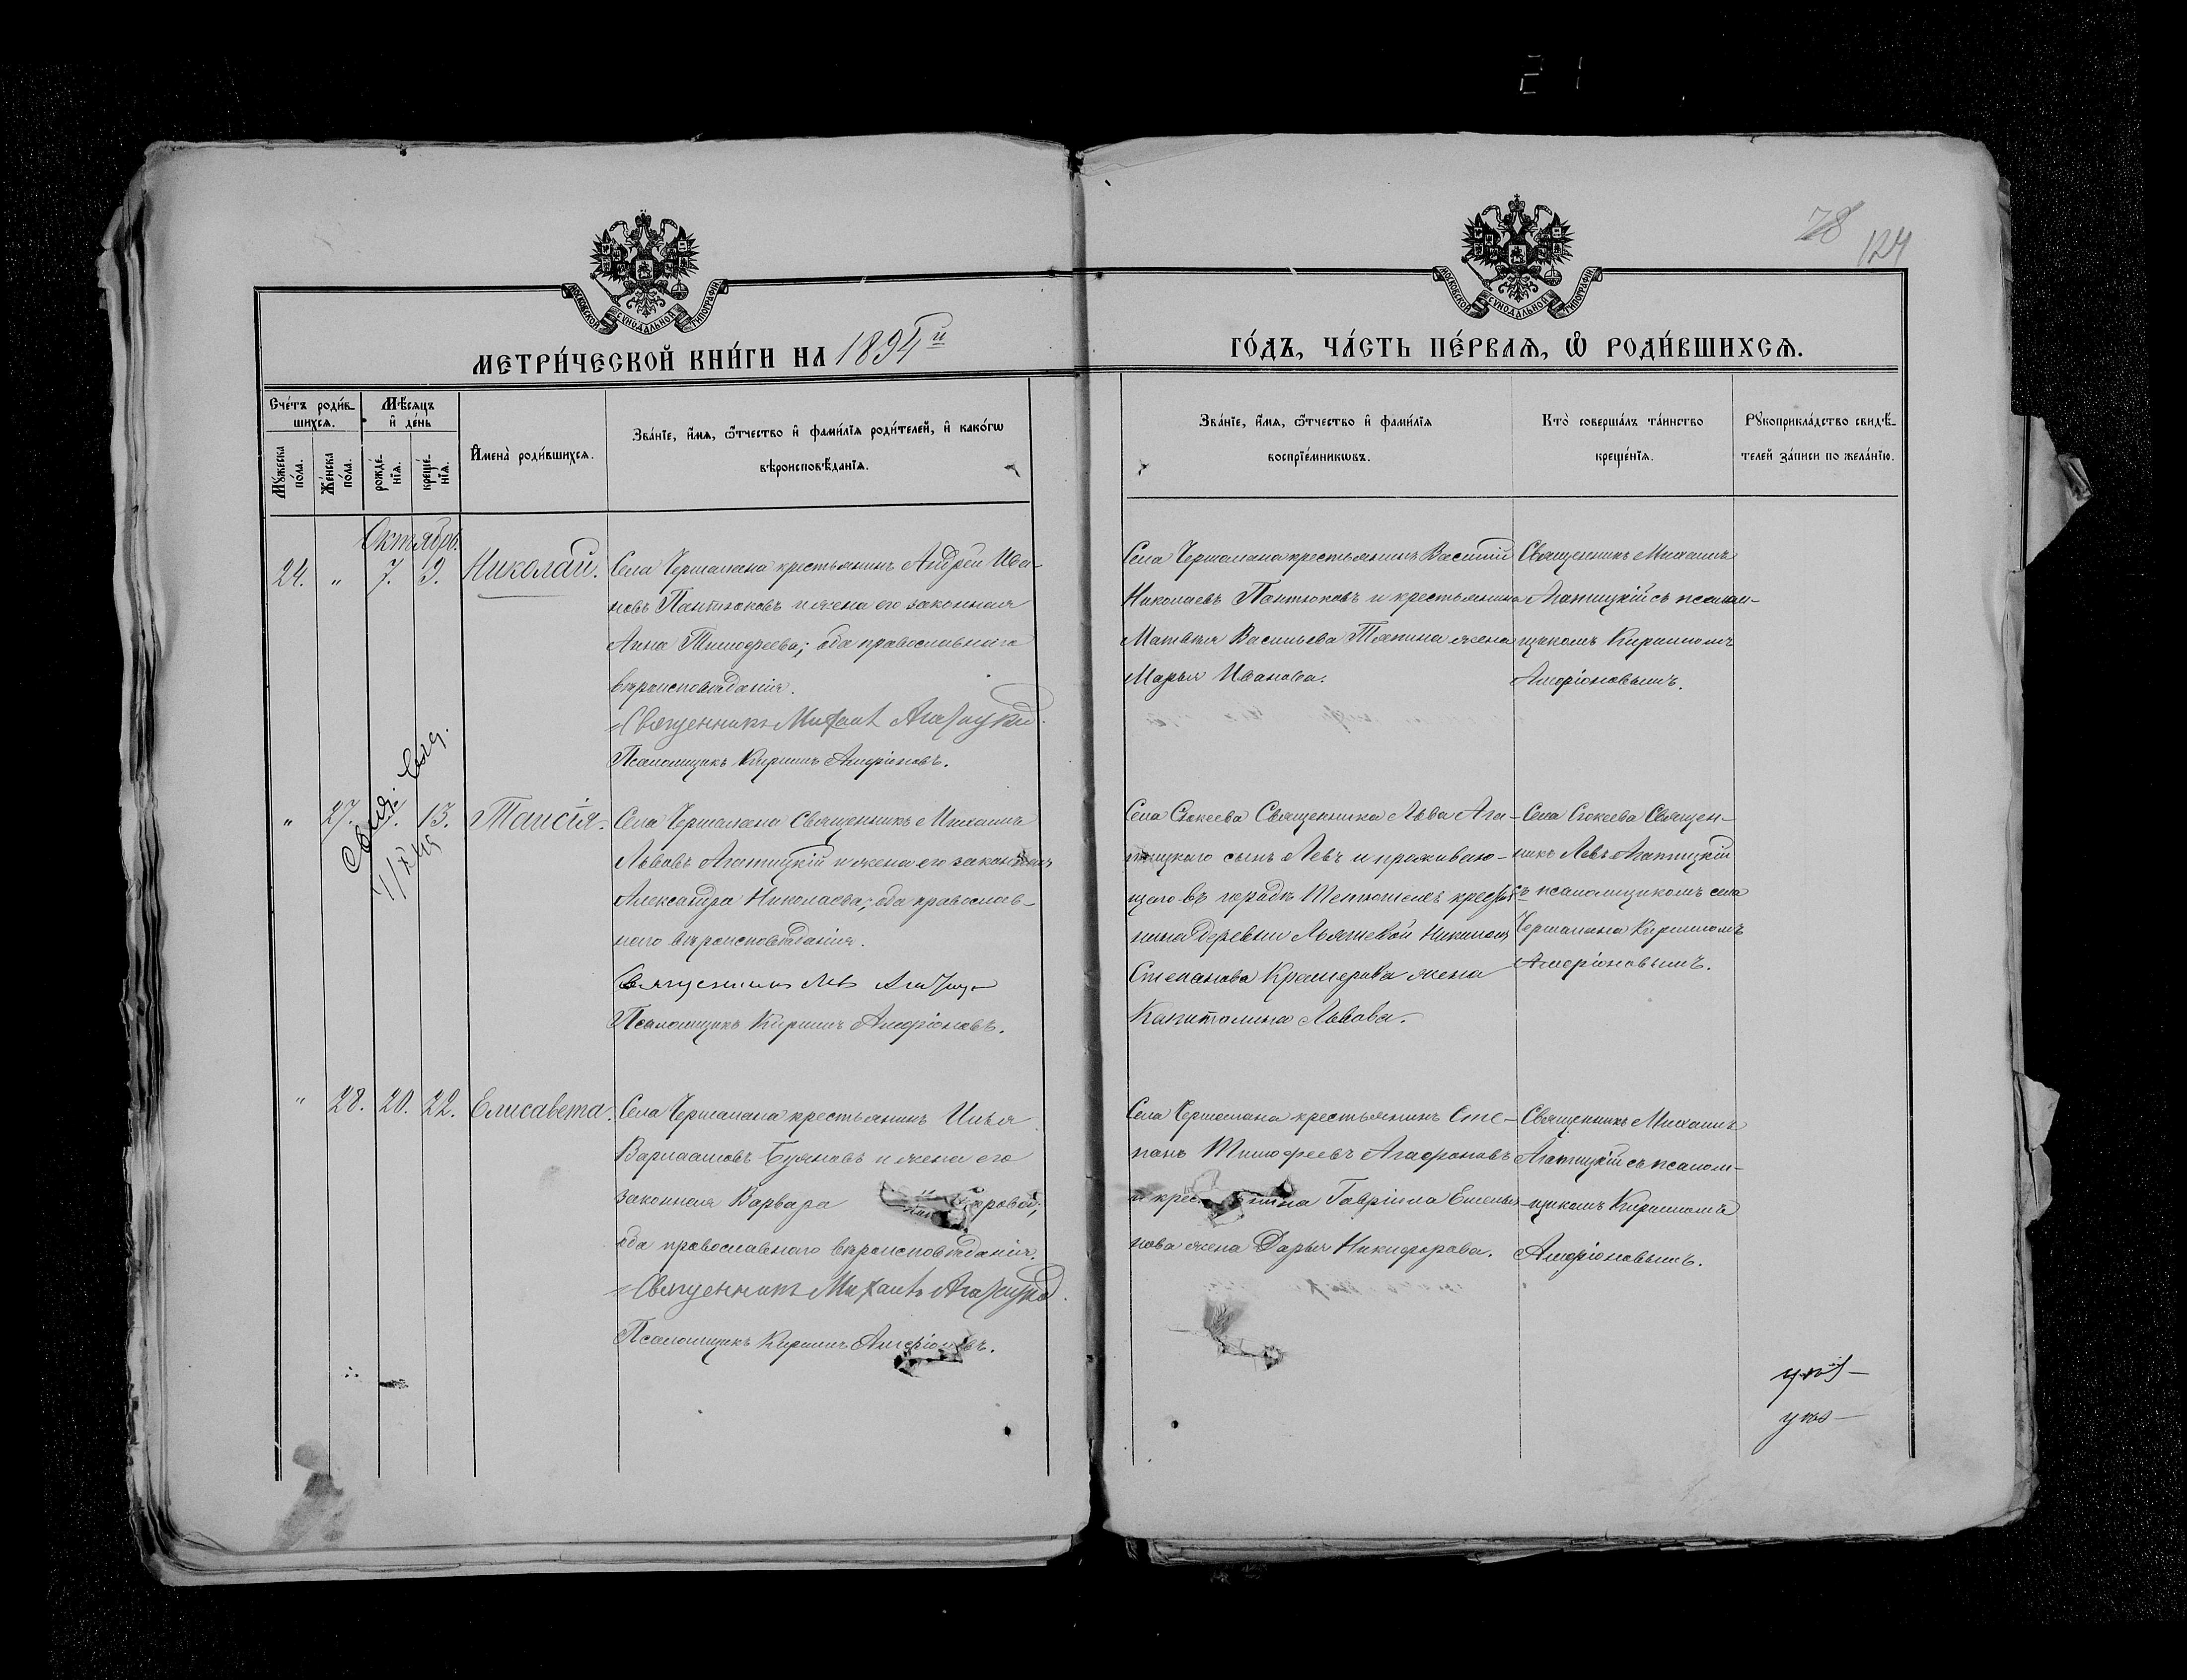 21
78
124
МОСКОВСКОЙ СУНОДАЛЬНОЙ ТИПОГРАФІИ
МОСКОВСКОЙ СУНОДАЛЬНОЙ ТИПОГРАФІИ
МЕТРИ́ЧЕСКОЙ КНИ́ГИ НА 1894й
ГО́ДЪ, ЧА́СТЬ ПЕ́РВАѦ, Ѡ҆ РОДИ́ВШИХСѦ.
Сче́тъ роди́в-
шихсѧ.
Мꙋ́жеска по́ла.
Же́нска по́ла.
Мѣ́сѧцъ
и҆ де́нь
рожде́-
нїѧ.
креще́-
нїѧ.
И҆мена̀ роди́вшихсѧ.
Зва́нїе, и҆́мѧ, ѻ҆́тчество и҆ фами́лїѧ роди́телей, и҆ како́гѡ
вѣроисповѣ́данїѧ.
Зва́нїе, и҆́мѧ, ѻ҆́тчество и҆ фами́лїѧ
воспрїе́мникѡвъ.
Кто̀ соверша́лъ та́инство
креще́нїѧ.
Рꙋкоприкла́дство свидѣ́-
телей за́писи по жела́нїю.
Октябрь.
24. " 7. 9. Николай.
Села Чершалана крестьянинъ Андрей Ива-
новъ Пантюковъ и жена его законная
Анна Тимофеева; оба православнаго
вѣроисповѣданія.
Священникъ Михаилъ Агатицкій.
Псаломщикъ Кириллъ Амфіоновъ.
Села Чершалана крестьянинъ Василій
Николаевъ Пантюковъ и крестьянина
Матвѣя Васильева Тяпина жена
Марья Иванова.
Священникъ Михаилъ
Агатицкій съ псалом-
щикомъ Кирилломъ
Амфіоновымъ.
" 27. 13. Таисія.
Села Чершалана Священникъ Михаилъ
Львовъ Агатицкій и жена его законная
Александра Николаева; оба православ-
наго вѣроисповѣданія.
Священникъ Левъ
Псаломщикъ Кириллъ Амфіоновъ.
Села Сюкеева Священника Льва Ага-
тицкаго сынъ Левъ и прожива­ю-
щаго въ городѣ Тетюшахъ крестья-
нина деревни
Степанова жена
Капитолина Львова.
Села Сюкеева Священ-
никъ Левъ Агатицкій
съ псаломщикомъ села
Чершалана Кирилломъ
Амфіоновымъ.
" 28. 20. 22. Елисавета.
Села Чершалана крестьянинъ Илья
Варлаамовъ Буяновъ и жена его
законная Варвара
оба православнаго вѣроисповѣданія.
Священникъ Михаилъ Агатицкій.
Псаломщикъ Кириллъ Амфіоновъ.
Села Чершалана крестьянинъ Сте-
панъ Тимофеевъ Агафоновъ
и крестьянина Гавріила Емелья-
нова жена Дарья Никифорова.
Священникъ Михаилъ
Агатицкій съ псалом-
щикомъ Кирилломъ
Амфіоновымъ.